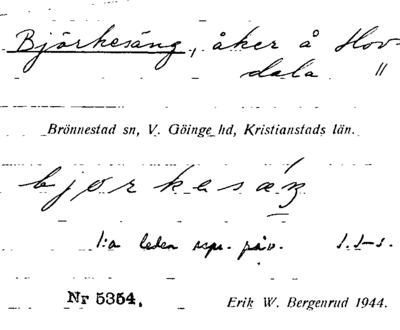 Björkesäng, åker å Hov-
dala. "
Brönnestad sn, V. Göinge hd, Kristianstads län.
1:a leden
Nr 5354.
Erik W. Bergenrud 1944.